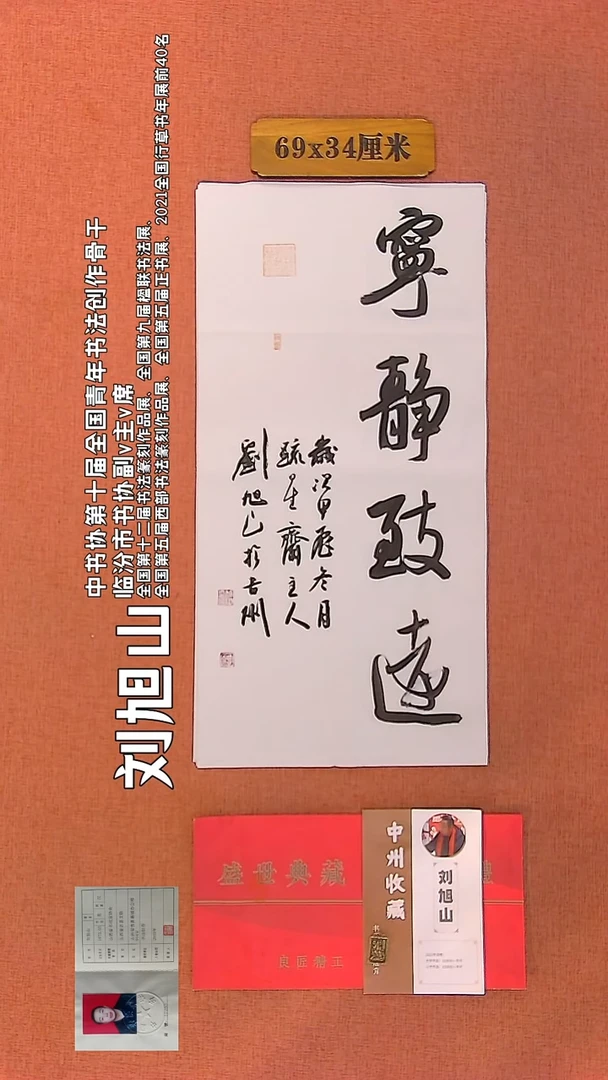 69x34厘米
寧静致遠
歲次甲辰冬月
疏星齋主人
劉旭山於吉州
刘旭山
中书协第十届全国青年书法创作骨干
临汾市书协副v主v席
全国第十二届书法篆刻作品展、全国第九届楹联书法展、
全国第五届西部书法篆刻作品展、全国第五届正书展、2021全国行草书年展前40名
盛世典藏
良匠精工
中州收藏
刘旭山